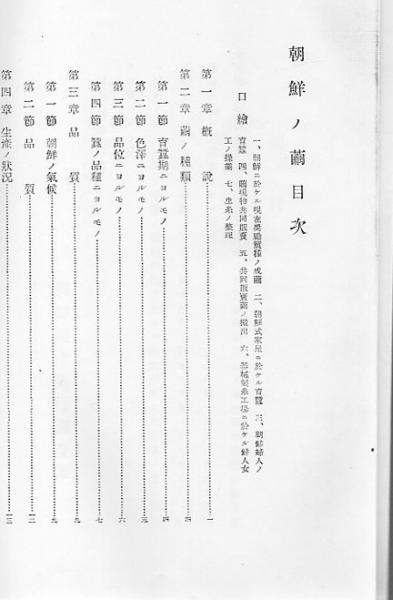 朝鮮ノ繭目次
口繪
一、朝鮮ニ於ケル現在奬勵蠶種ノ成繭 二、朝鮮式家屋ニ於ケル育蠶 三、朝鮮婦人ノ
育蠶 四、繭現物共同販賣 五、共同販賣繭ノ搬出 六、器械製糸工場ニ於ケル鮮人女
工ノ操業 七、生糸ノ整理
第一章 概說 一
第二章 繭ノ種類 四
第一節 育蠶期ニヨルモノ 四
第二節 色澤ニヨルモノ 五
第三節 品位ニヨルモノ 六
第四節 蠶ノ品種ニヨルモノ 七
第三章 品質 九
第一節 朝鮮ノ氣候 九
第二節 品質
第四章 生產ノ狀況